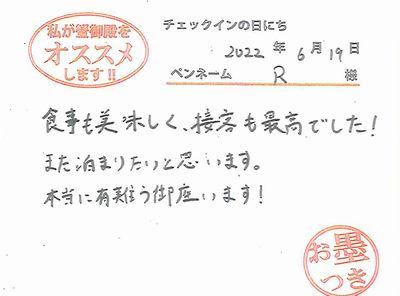 私が蟹御殿を
オススメ
します!!
チェックインの日にち
2022年6月19日
ペンネーム R 様
食事も美味しく、接客も最高でした!
また泊まりたいと思います。
本当に有難う御座います!
お墨
つき